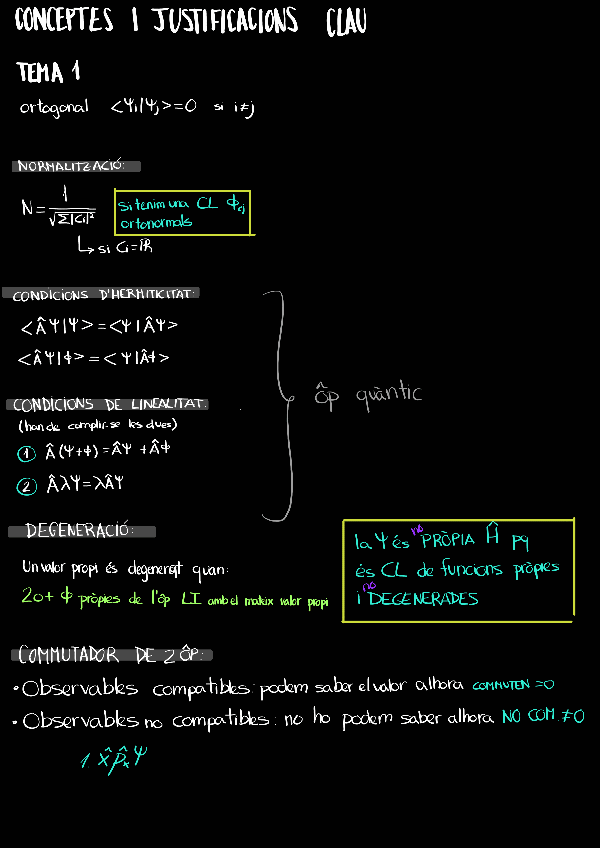 CONCEPTES I JUSTIFICACIONS CLAU
TEMA 1
ortogonal <Ψi|Ψj>=0 si i≠j
NORMALITZACIÓ:
N = 1/√Σ|Ci|²
si tenim una CL ϕcj
ortonormals
↳ si Ci=ℝ
CONDICIONS D'HERMITICITAT:
<ÂΨ|Ψ> = <Ψ|ÂΨ>
<ÂΨ|ϕ> = <Ψ|Âϕ>
ôp quàntic
CONDICIONS DE LINEALITAT:
(han de complir-se les dues)
① Â(Ψ+ϕ) = ÂΨ + Âϕ
② ÂλΨ = λÂΨ
DEGENERACIÓ:
Un valor propi és degenerat quan:
2 o + ϕ pròpies de l'ôp LI amb el mateix valor propi
la Ψ és no PRÒPIA Ĥ pq
és CL de funcions pròpies
i no DEGENERADES
COMMUTADOR DE 2 ÔP:
• Observables compatibles: podem saber el valor alhora COMMUTEN =0
• Observables no compatibles: no ho podem saber alhora NO COM. ≠0
1. x̂p̂ₓΨ